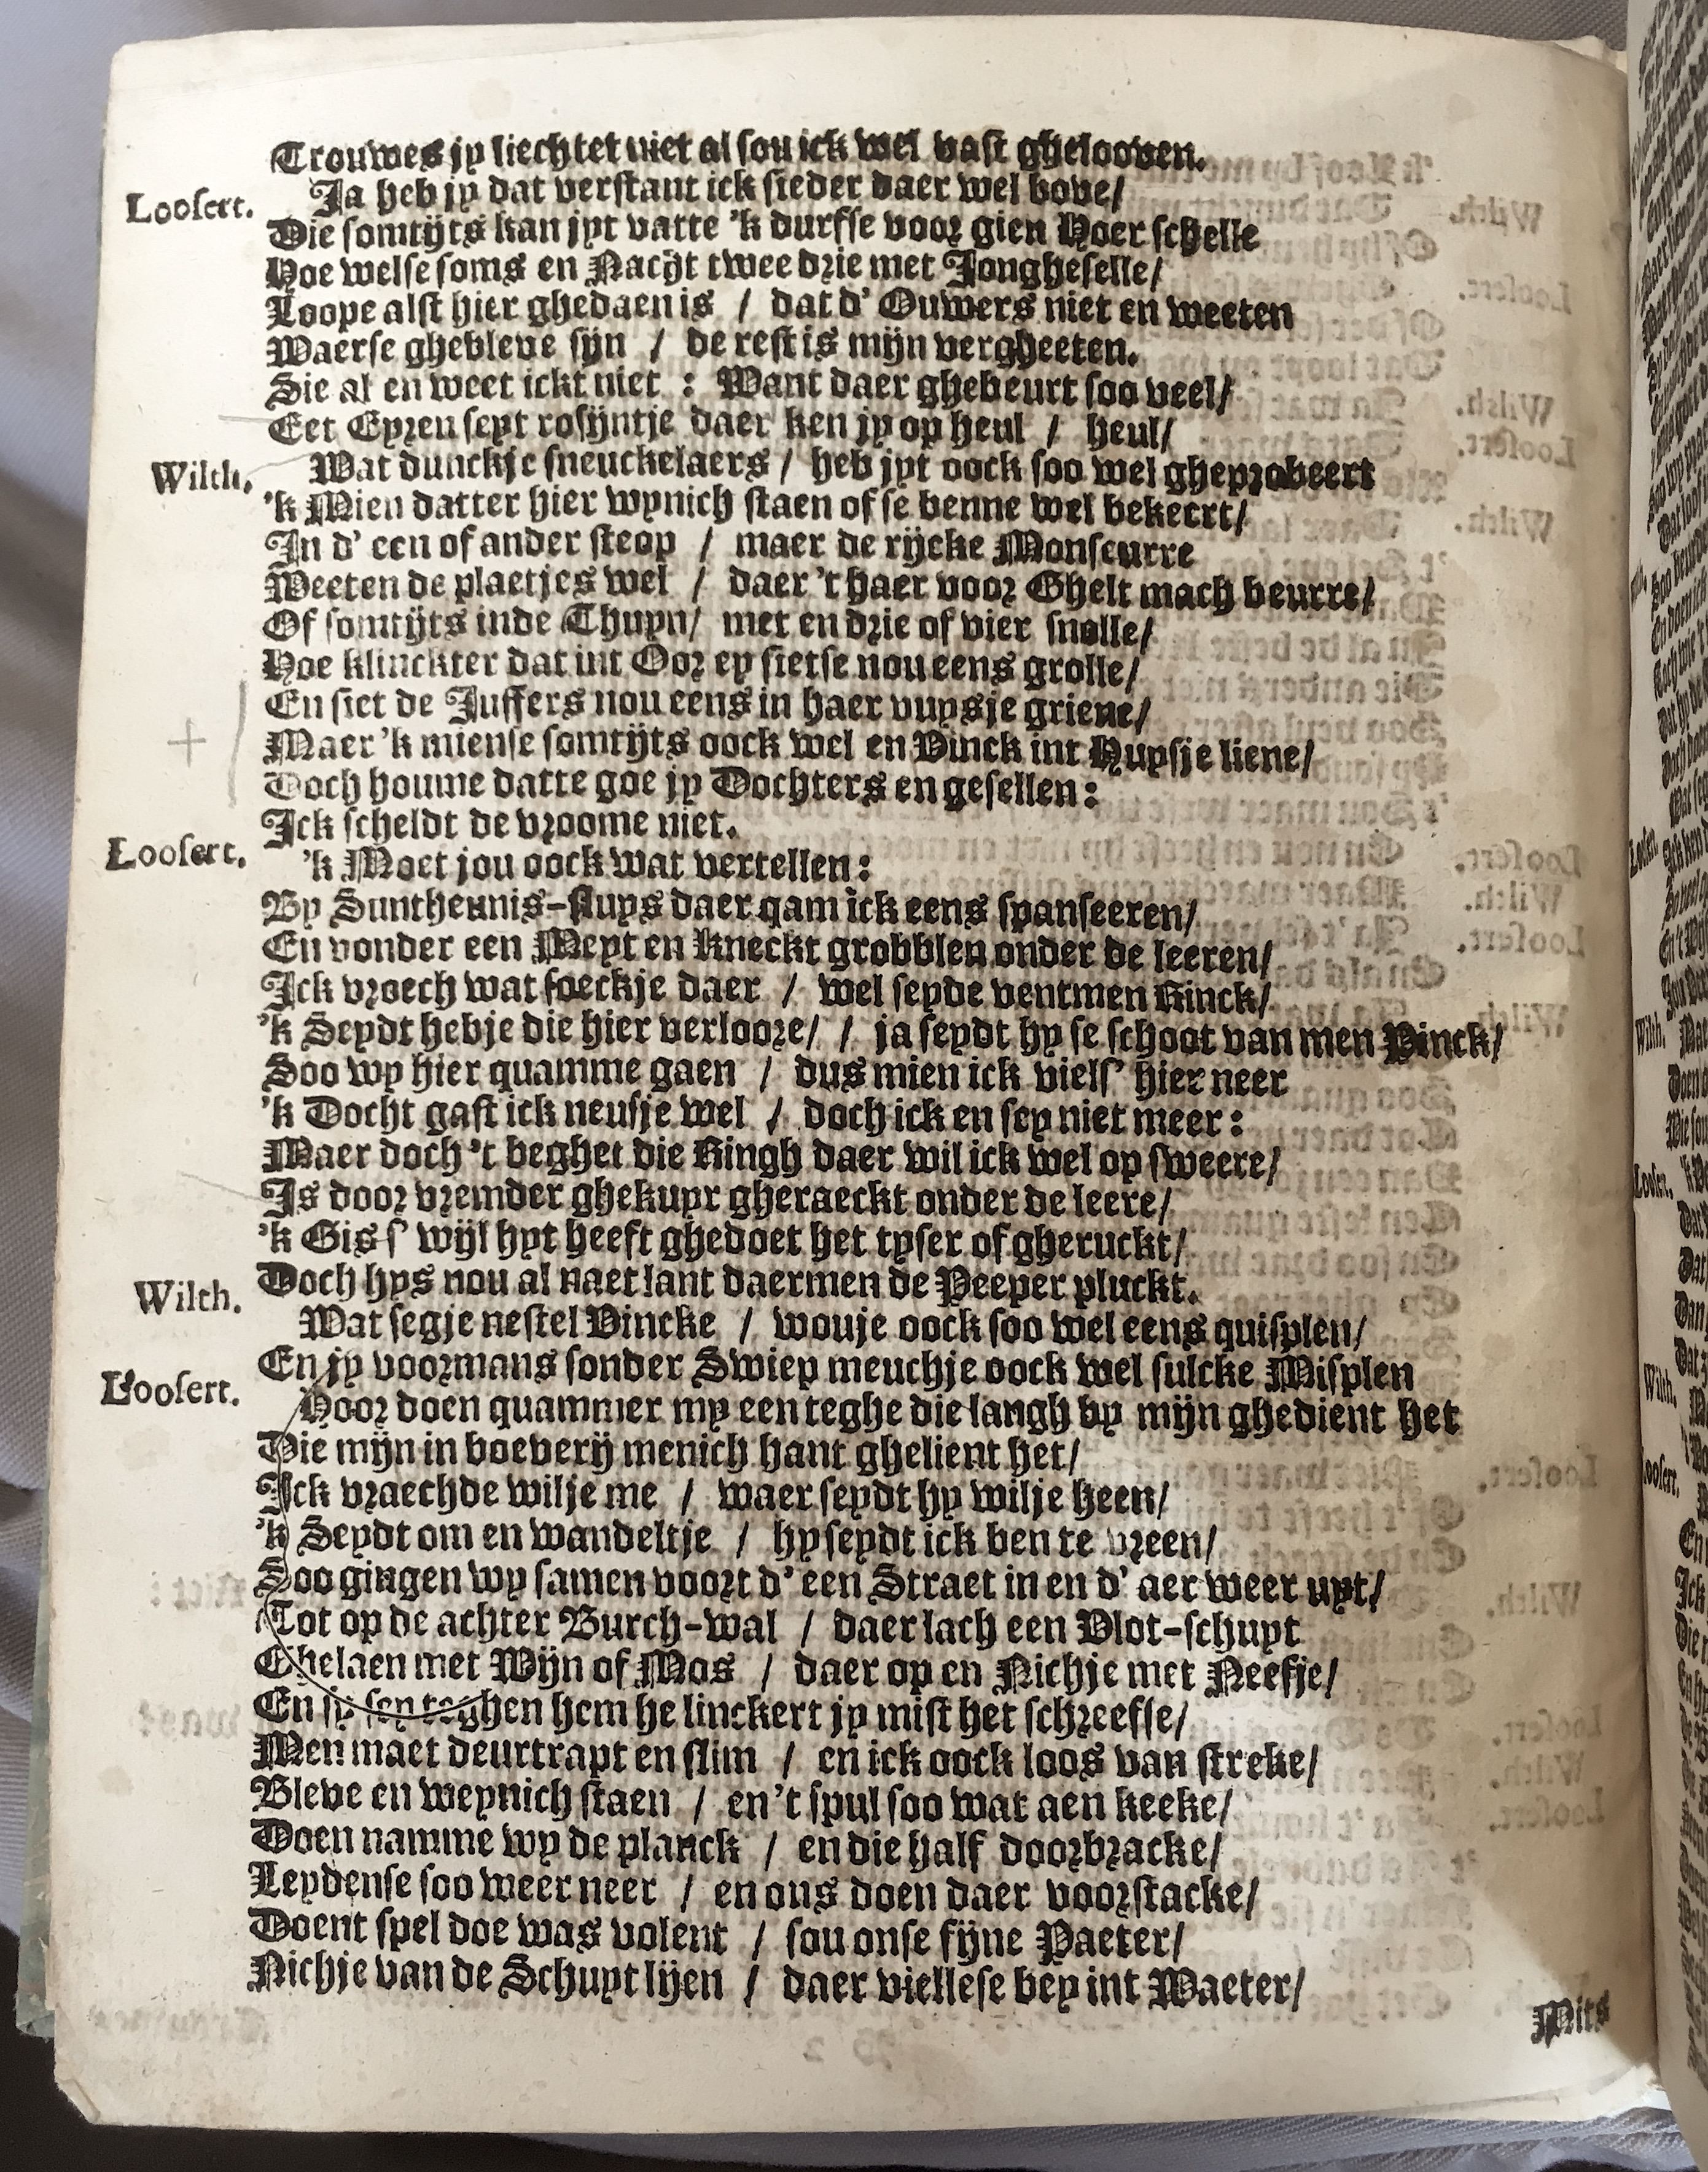 Trouwes jy liechtet niet al sou ick wel vast ghelooven.
Loosert. Ja heb jy dat verstant ick sieder daer wel bove/
Die somtijts kan jyt vatte 'k durfse voor gien Hoer schelle
Hoe welse soms en Nacht twee drie met Jongheselle/
Loope alst hier ghedaen is / dat d' Ouwers niet en weeten
Waerse ghebleve sijn / de rest is mijn vergheeten.
Sie al en weet ickt niet : Want daer ghebeurt soo veel/
Eet Eyren seyt rosijntje daer ken jy op heul / heul/
Wilth. Wat dunckje sneuckelaers / heb jyt oock soo wel gheprobeert
'k Mien datter hier wynich staen of se benne wel bekeert/
In d' een of ander steop / maer de rijcke Monseurre
Weeten de plaetjes wel / daer 't haer voor Ghelt mach beurre/
Of somtijts inde Thuyn/ met en drie of vier snolle/
Hoe klinckter dat int Oor ey sietse nou eens grolle/
En siet de Juffers nou eens in haer vuysje griene/
Maer 'k miense somtijts oock wel en Vinck int Huysje liene/
Doch houme datte goe jy Dochters en gesellen:
Ick scheldt de vroome niet.
Loosert. 'k Moet jou oock wat vertellen:
By Suntheunis-sluys daer qam ick eens spanseeren/
En vonder een Meyt en Kneckt grobblen onder de leeren/
Ick vroech wat soeckje daer / wel seyde ventmen Rinck/
'k Seydt hebje die hier verloore/ / ja seydt hy se schoot van men Pinck/
Soo wy hier quamme gaen / dus mien ick viels' hier neer
'k Docht gast ick neusje wel / doch ick en sey niet meer:
Maer doch 't beghet die Ringh daer wil ick wel op sweere/
Is door vremder ghekuyr gheraeckt onder de leere/
'k Gis s' wijl hyt heeft ghedoet het tyser of gheruckt/
Doch hys nou al naet lant daermen de Peeper pluckt.
Wilth. Wat segje nestel Vincke / wouje oock soo wel eens quisplen/
En jy voormans sonder Swiep meuchje oock wel sulcke Misplen
Loosert. Hoor doen quammer my een teghe die langh by mijn ghedient het
Die mijn in boeverij menich hant ghelient het/
Ick vraechde wilje me / waer seydt hy wilje heen/
'k Seydt om en wandeltje / hy seydt ick ben te vreen/
Soo gingen wy samen voort d' een Straet in en d' aer weer uyt/
Tot op de achter Burch-wal / daer lach een Vlot-schuyt
Ghelaen met Wijn of Mos / daer op en Nichje met Neefje/
En jy sey teghen hem he linckert jy mist het schreefse/
Men maet deurtrapt en slim / en ick oock loos van streke/
Bleve en weynich staen / en 't spul soo wat aen keeke/
Doen namme wy de planck / en die half doorbracke/
Leydense soo weer neer / en ons doen daer voorstacke/
Doent spel doe was volent / sou onse fijne Paeter/
Nichje van de Schuyt lijen / daer viellese bey int Waeter/
Mits